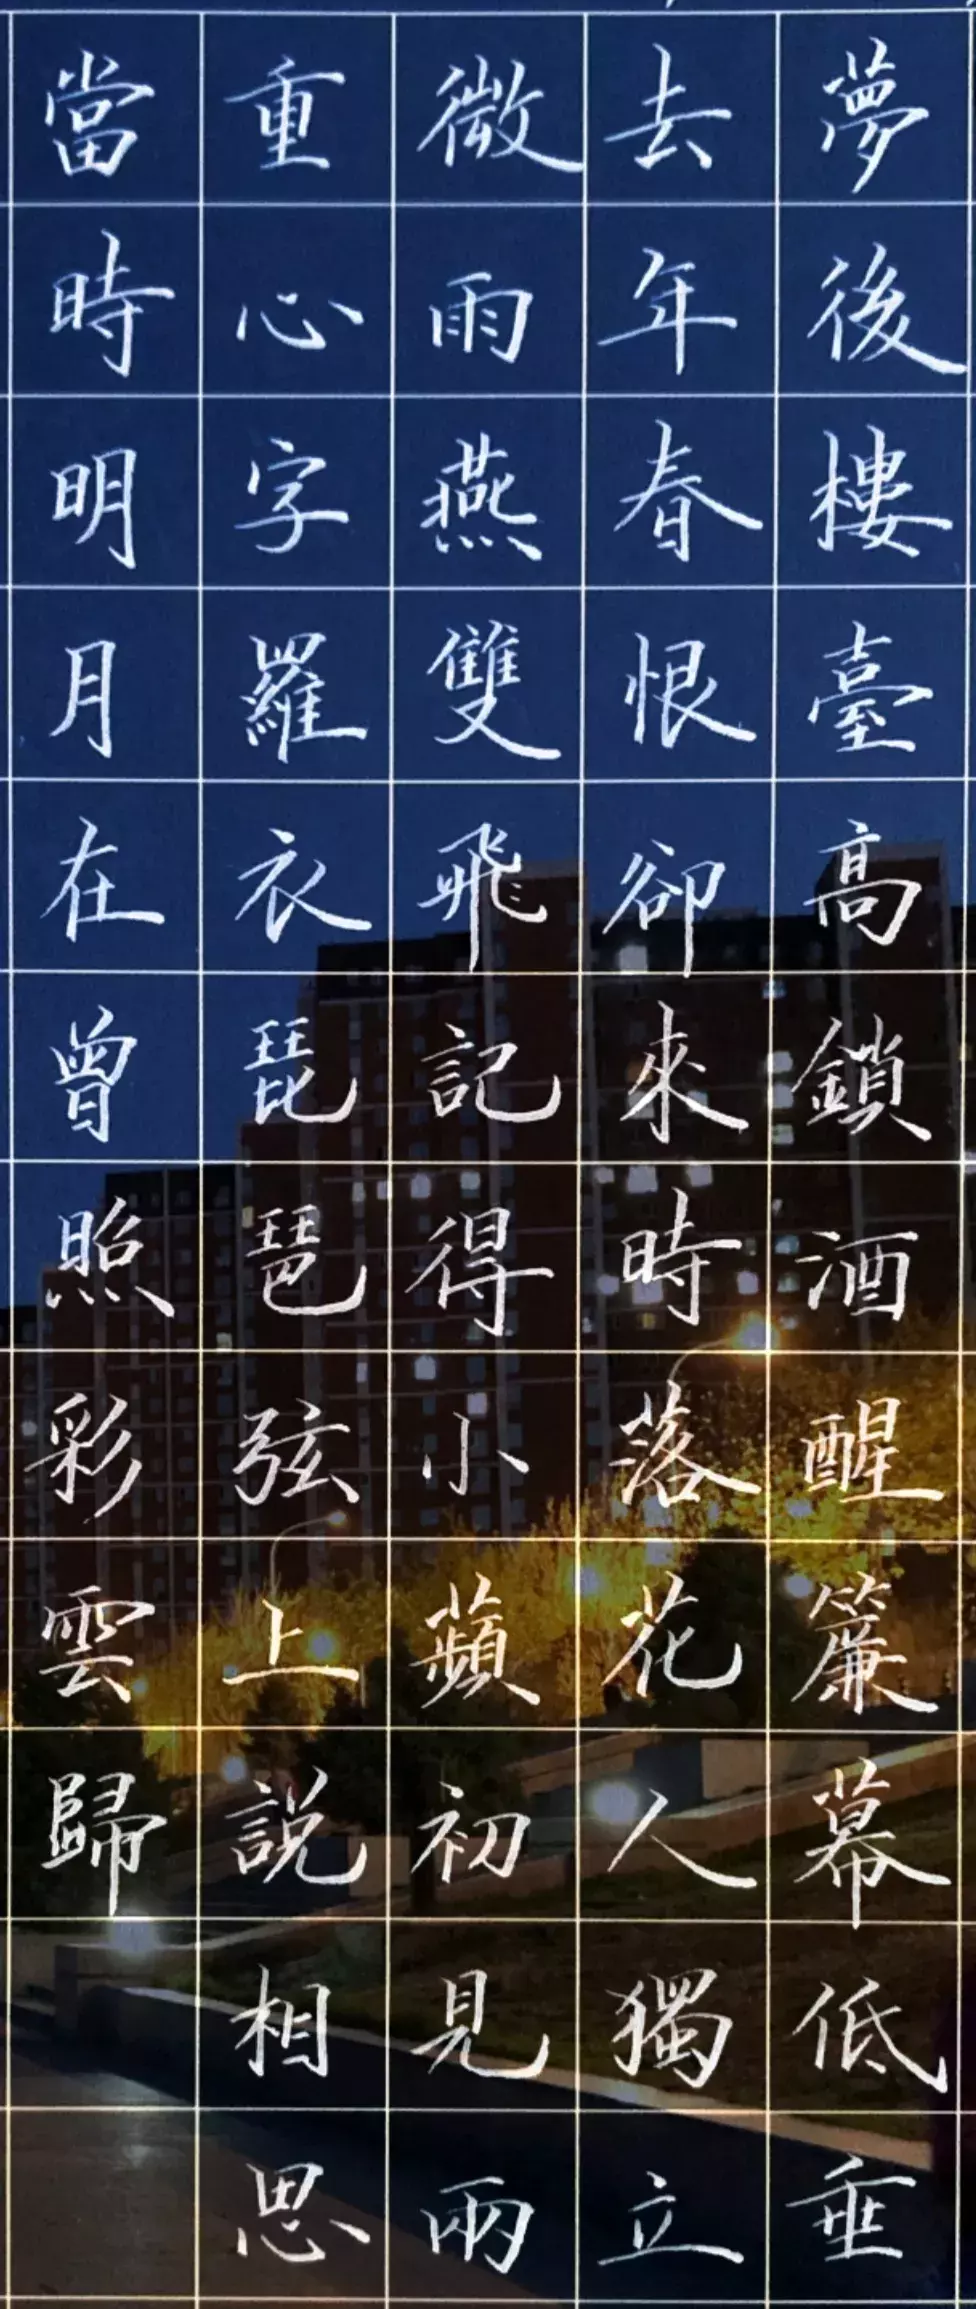 夢後樓臺高鎖酒醒簾幕低垂
去年春恨卻來時落花人獨立
微雨燕雙飛記得小蘋初見兩
重心字羅衣琵琶弦上說相思
當時明月在曾照彩雲歸